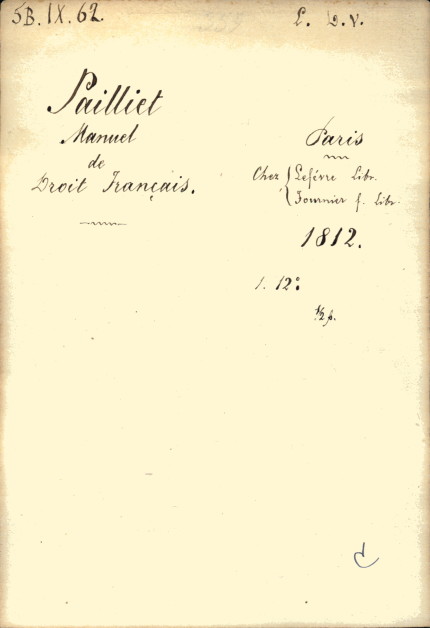 5B. IX. 62.
L. D. V.
Pailliet
Manuel
de
Droit Français.
Paris
Chez { Lefévre Libr.
Fournier f. Libr.
1812.
1. 12º
½ p.